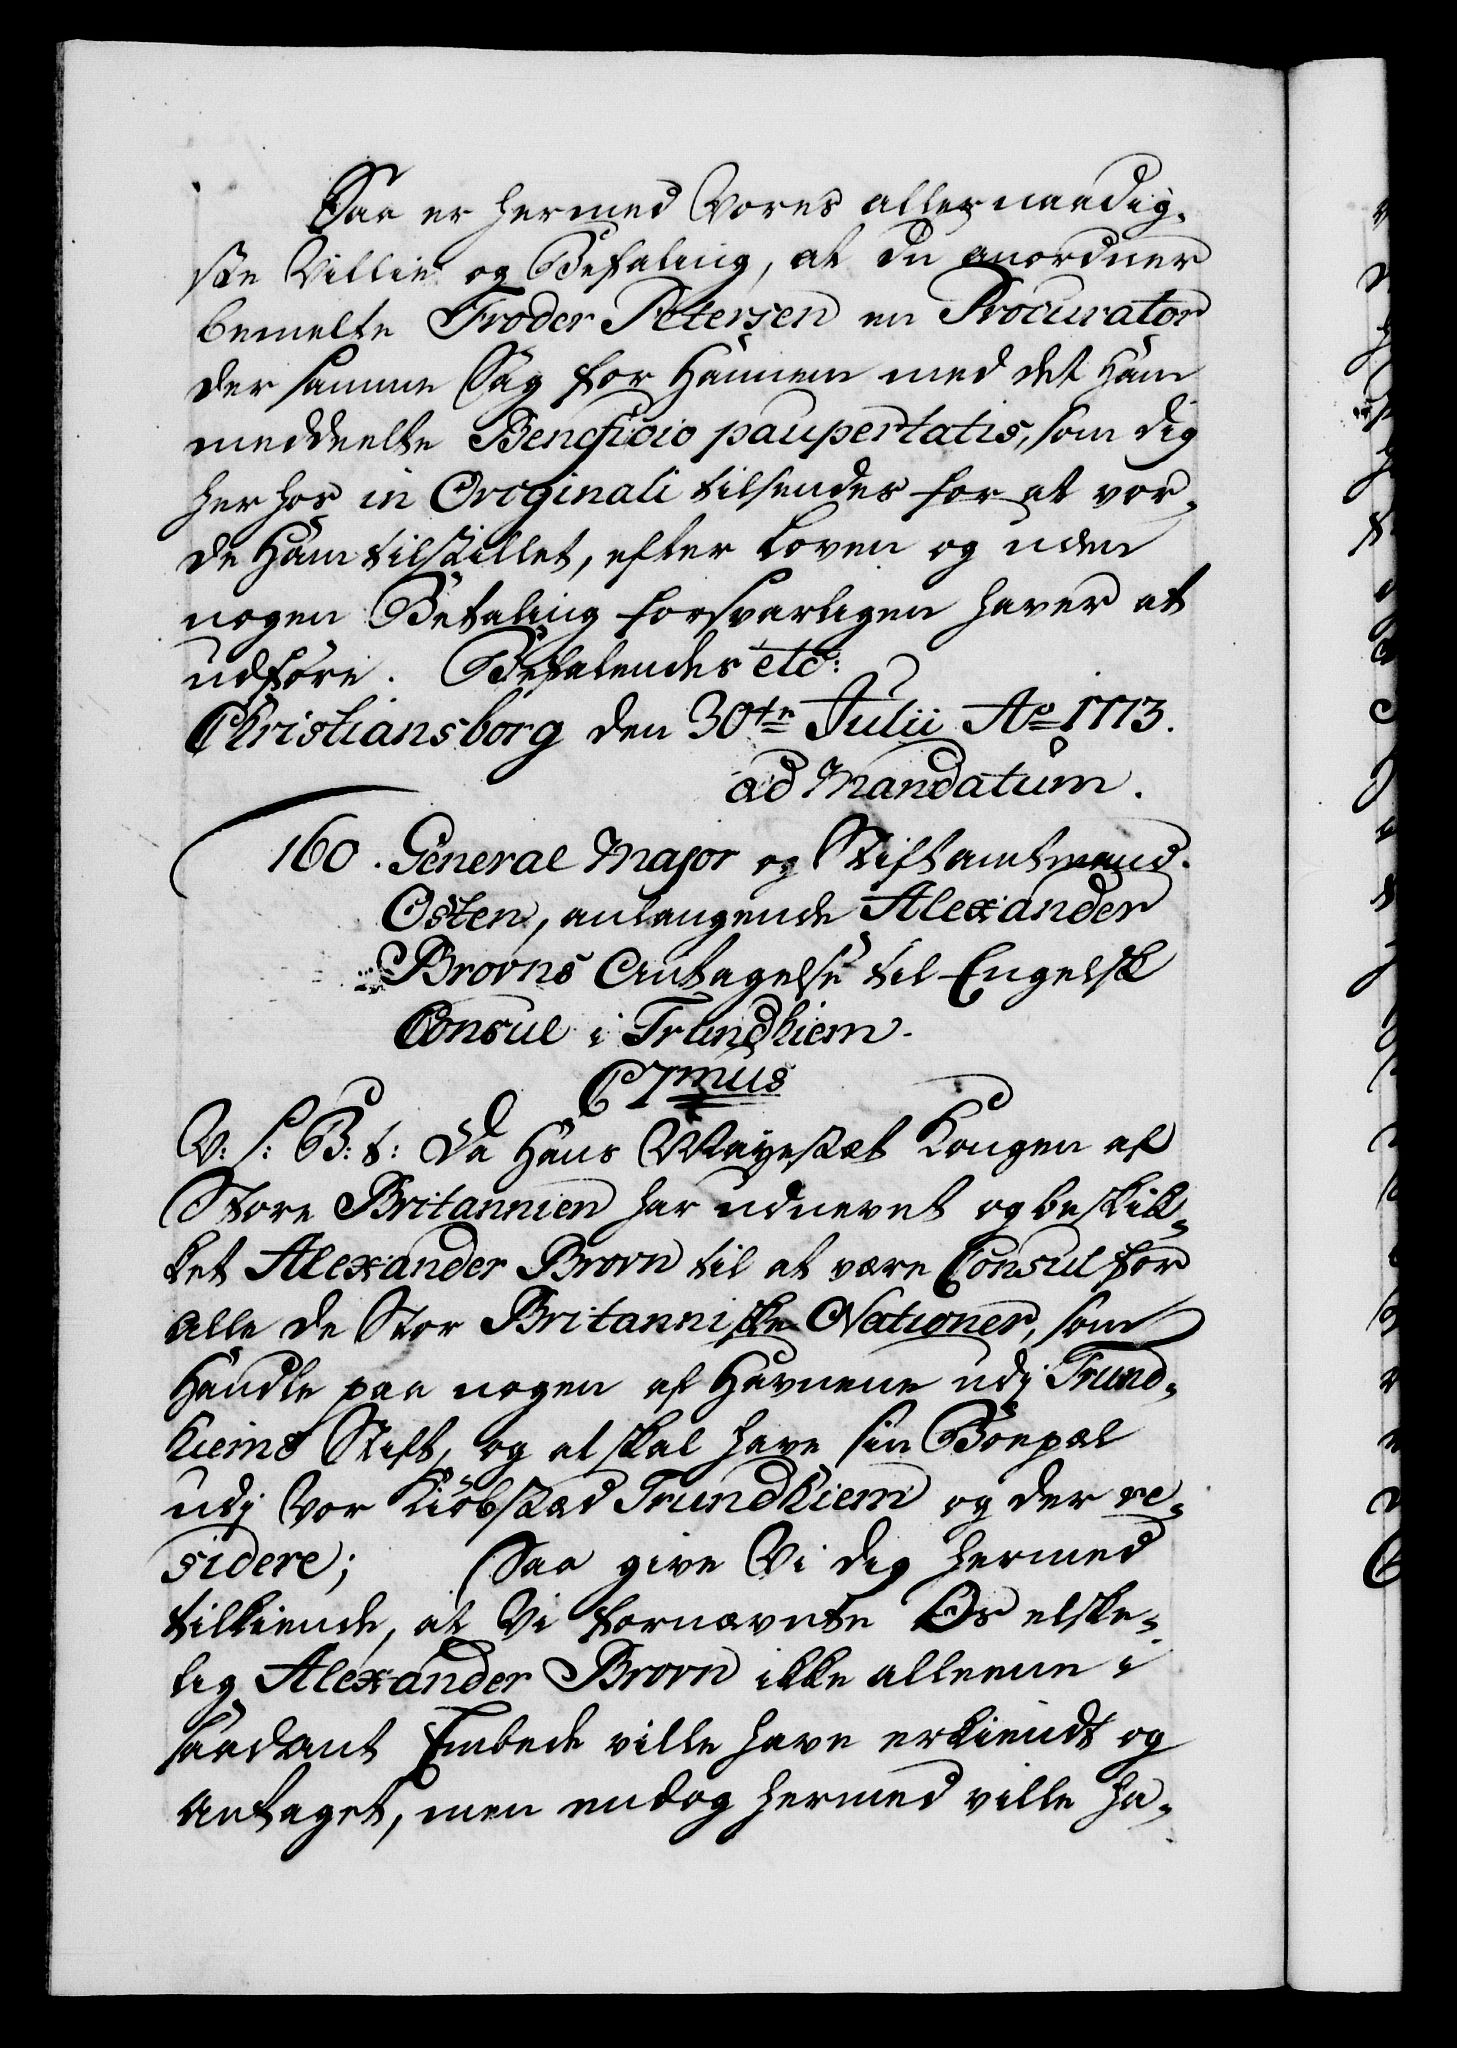 Saa er hermed Vores allernaadig-
ste Villie og Befaling, at du anordner
bemelte Troder Petersen en Procurator
der samme Sag for Hannem med det Ham
meddeelte Beneficio paupertatis, som dig
her hos in Originali tilsendes for at vor-
de Ham tilstillet, efter Loven og uden
nogen Betaling forsvarligen haver at
udføre. Befalendes etc:
Christiansborg den 30te Julii Ao 1773.
ad Mandatum.
160. General Major og Stiftamtmand
Osten, anlangende Alexander
Brovns Antagelse til Engelsk
Consul i Trundhiem.
C7mus
V: S: B: t: Da Hans Mayestæt Kongen af
Store Britannien har udnevnt og beskik-
ket Alexander Brovn til at være Consul for
alle de Stor Britanniske Nationer, som
Handle paa nogen af Havnene udj Trund-
hiems Stift, og at skal have sin Boepæl
udj Vor Kiøbstæd Trundhiem og der re-
sidere; Saa give Vi dig hermed
tilkiende, at Vi fornævnte Os elske-
lig Alexander Brovn ikke alleene i
saadant Embede ville have erkiendt og
Antaget, men endog hermed ville ha-